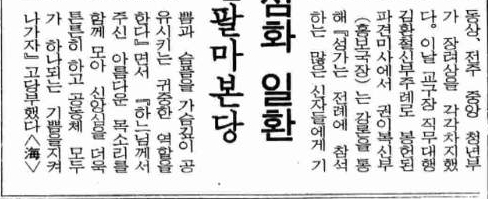 동상, 전주 중앙 청년부
가 장려상을 각각차지했
다. 이날 교구장 직무대행
김환철신부주례로 봉헌된
파견미사에서 권이복신부
(홍보국장)는 강론을 통
해 『성가는 전례에 참석
하는 많은 신자들에게 기
쁨과 슬픔을 가슴깊이 공
유시키는 귀중한 역할을
한다』면서 『하느님께서
주신 아름다운 목소리를
함께 모아 신앙심을 더욱
튼튼히 하고 공동체 모두
가 하나되는 기쁨을지켜
나가자』고당부했다〈海〉
심화 일환
팔마본당